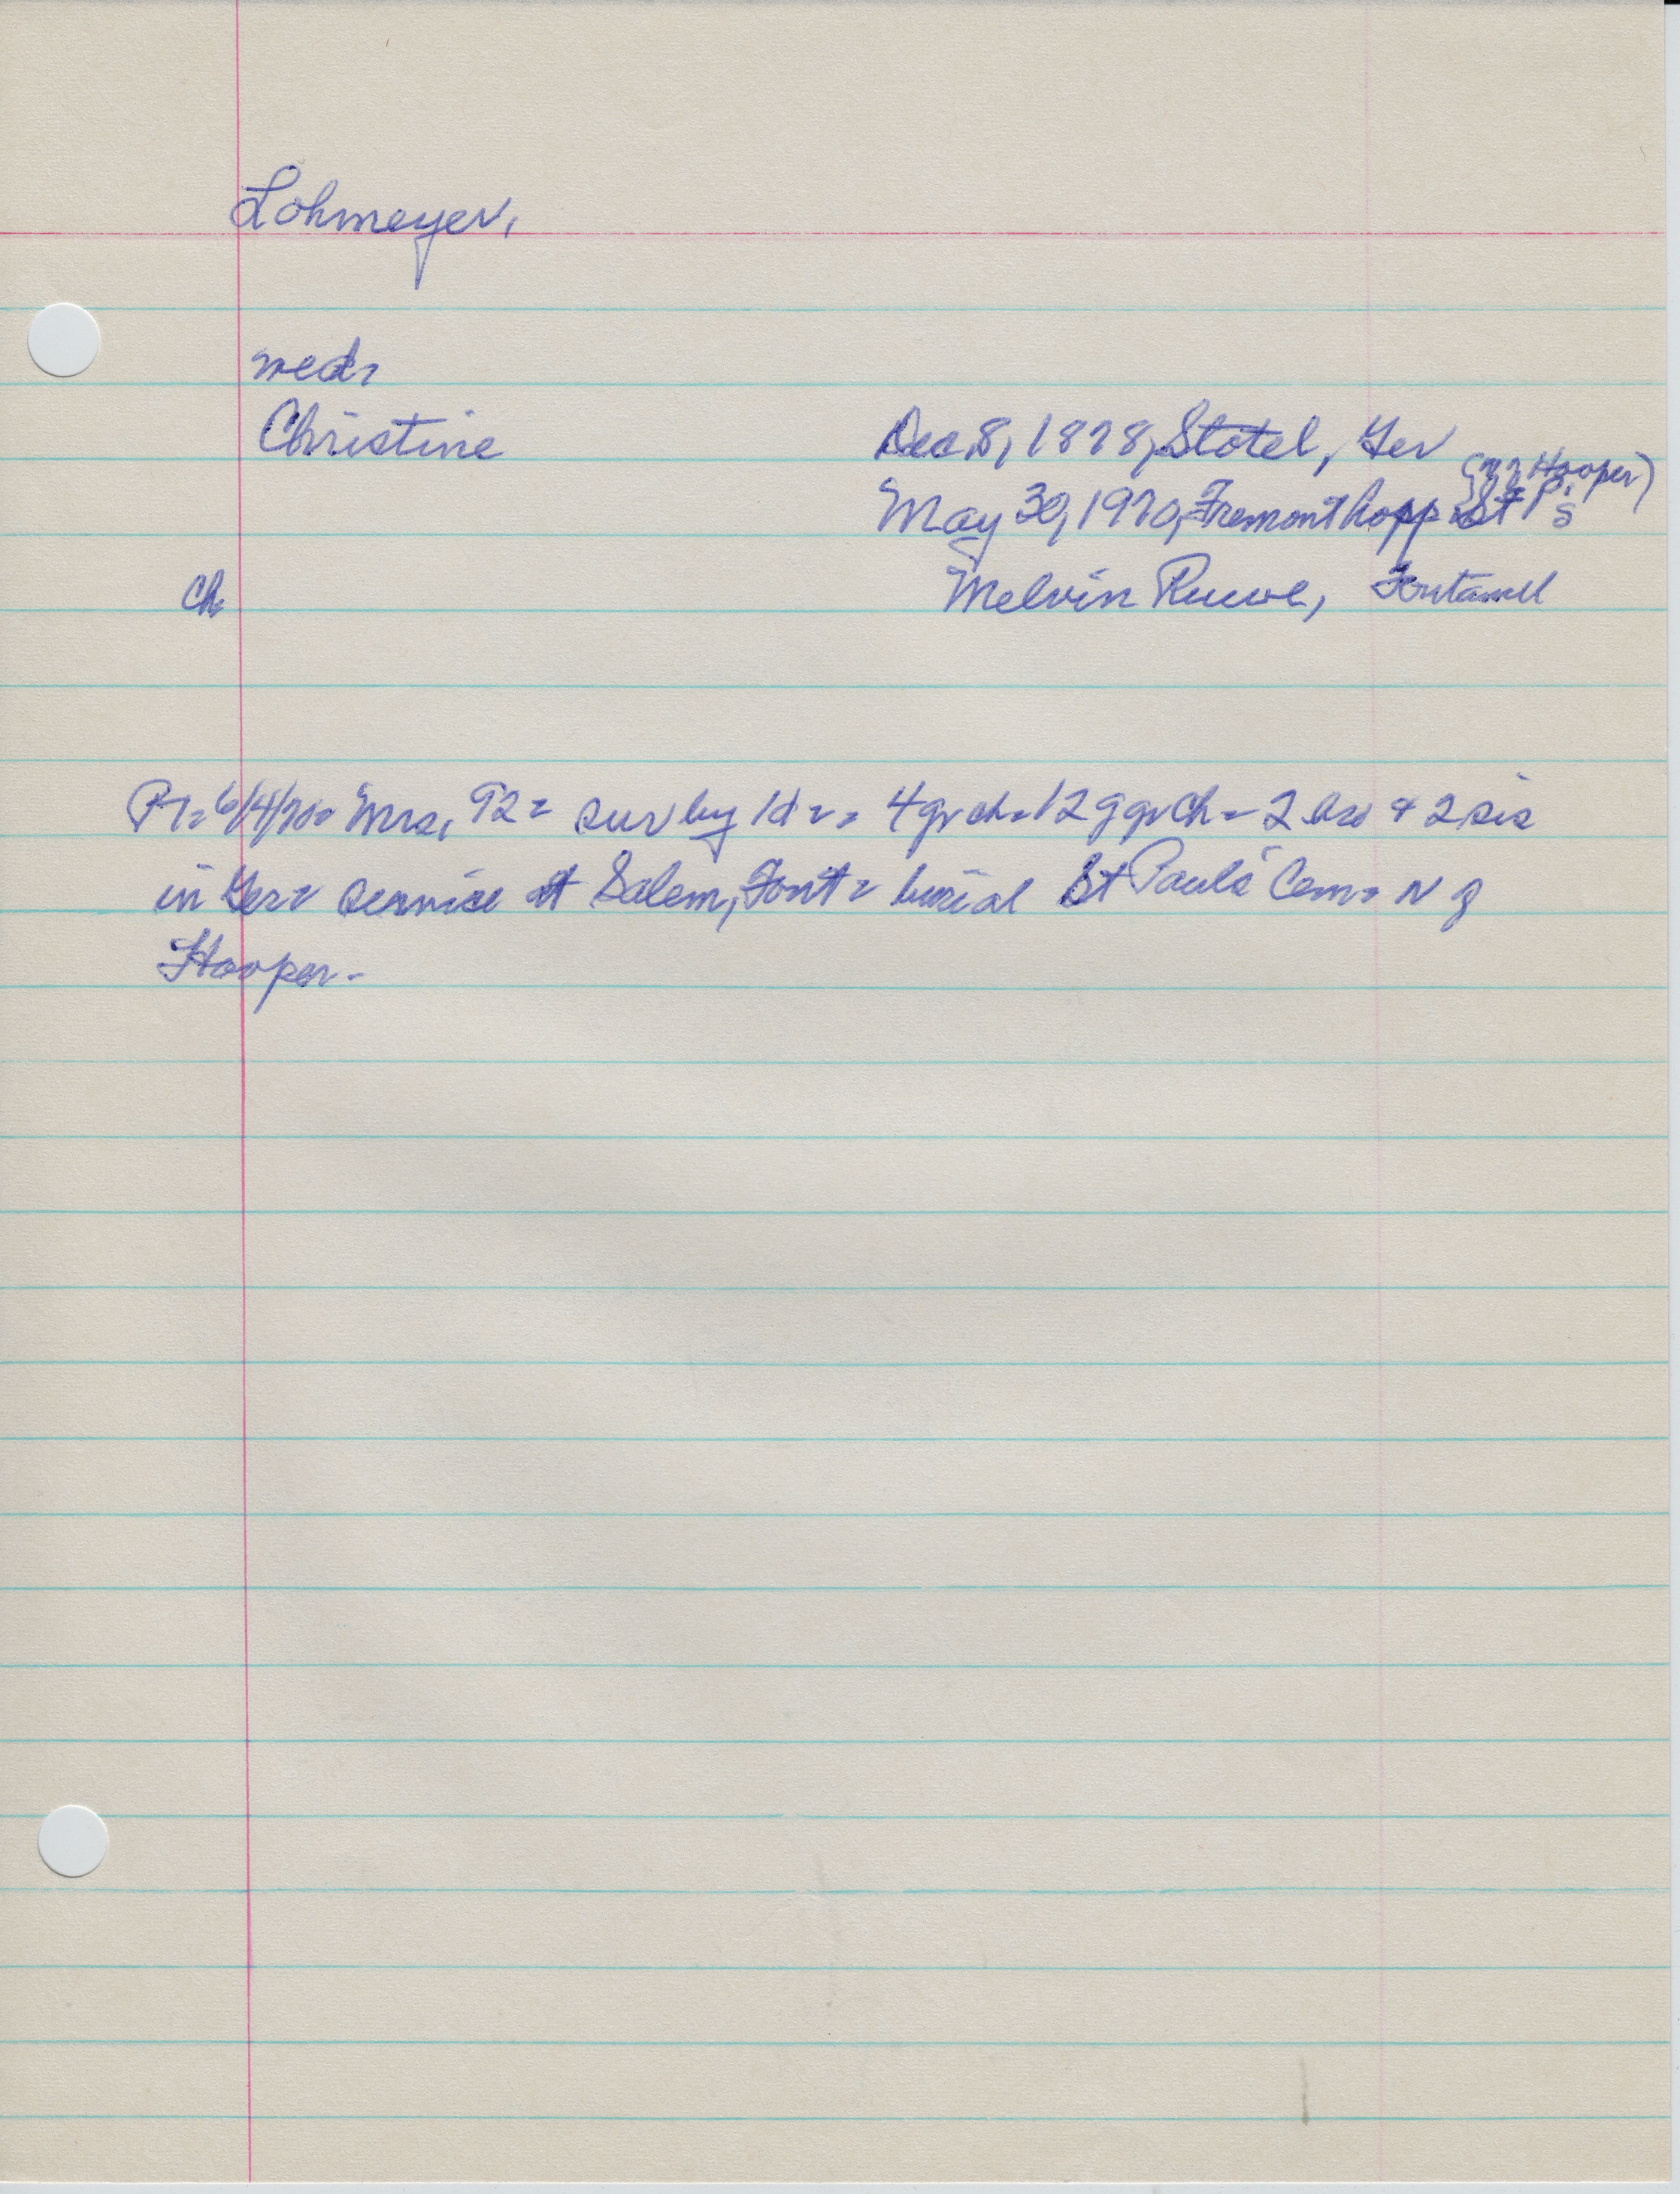 Lohmeyer,
wed,
Christine
Dec 8, 1878, Stotel, Ger
(n of Hooper)
May 30, 1970, Fremont hosp St P's
Ch
Melvin Ruwe, Fontanell
PT= 6/4/70= Mrs, 92= sur by 1d = 4 gr ch= 12 g gr Ch - 2 bro & 2 sis
in Ger= service at Salem, Font= burial St Pauls' Cem= N of
Hooper-